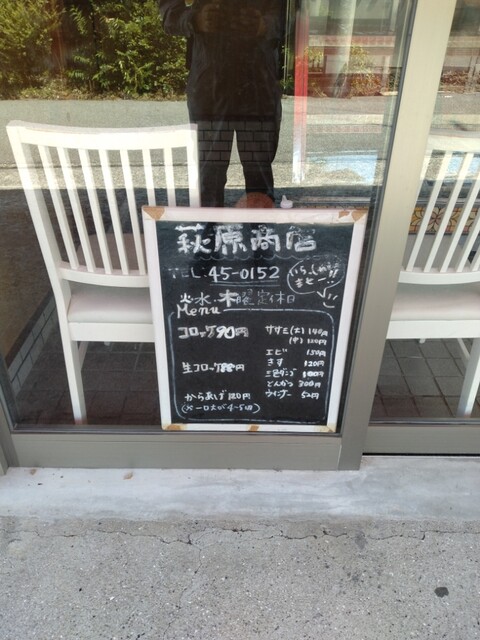 萩原商店
TEL:45-0152
いらっしゃいませ〜!!
火・水・木曜定休日
Menu
コロッケ90円
生コロッケ
からあげ 120円
ササミ(大) 140円
(中) 120円
エビ 150円
きす 120円
三色ダンゴ 100円
とんかつ 300円
ウインナー 50円